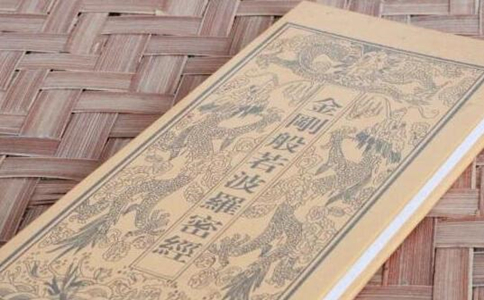 金剛般若波羅密經